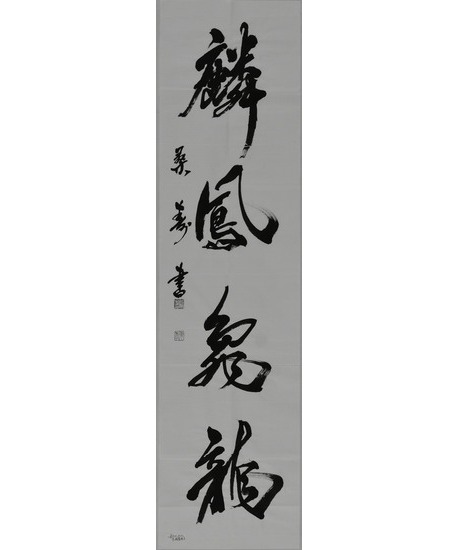 麟鳳龜龍
桑壽書